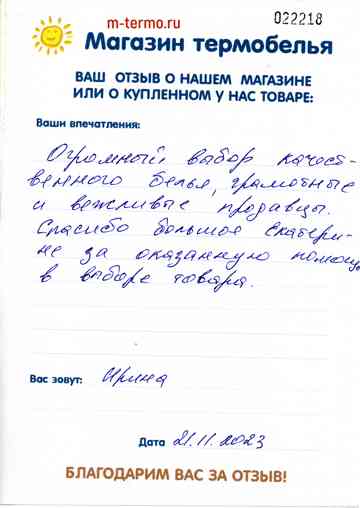 m-termo.ru
022218
Магазин термобелья
ВАШ ОТЗЫВ О НАШЕМ МАГАЗИНЕ
ИЛИ О КУПЛЕННОМ У НАС ТОВАРЕ:
Ваши впечатления:
Огромный выбор качест-
венного белья, грамотные
и вежливые продавцы.
Спасибо большое Екатери-
не за оказанную помощь
в выборе товара.
Вас зовут: Ирина
Дата 21.11.2023
БЛАГОДАРИМ ВАС ЗА ОТЗЫВ!